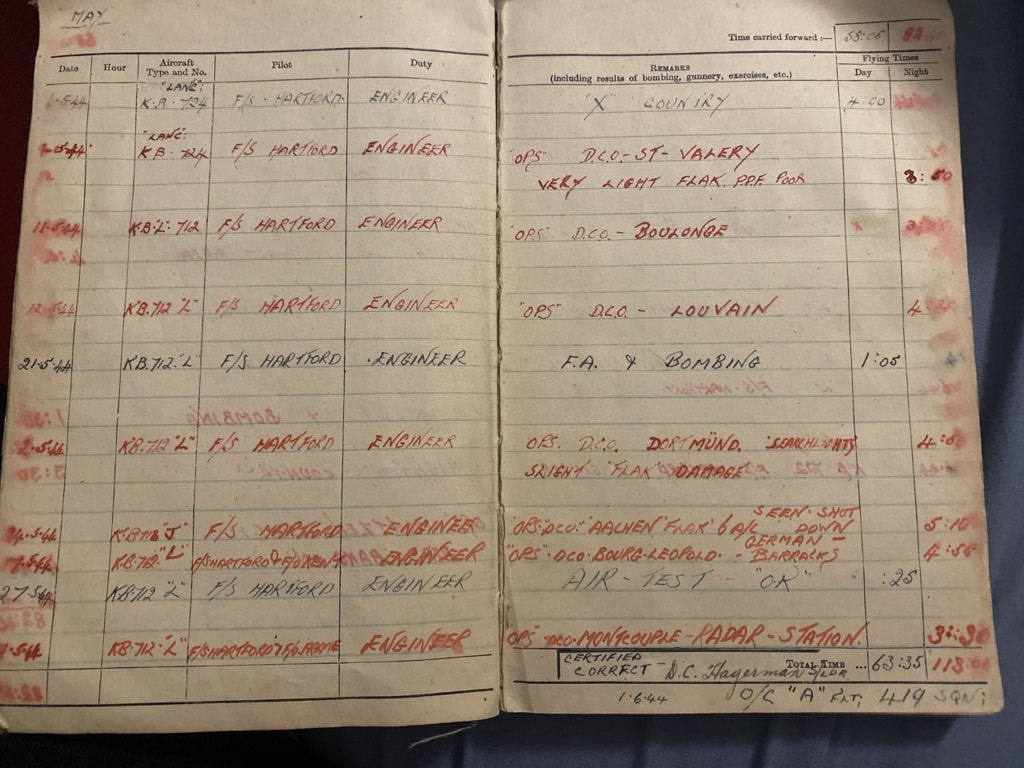 MAY
Time carried forward :— 58:05
Date Hour Aircraft Type and No. Pilot Duty REMARKS (including results of bombing, gunnery, exercises, etc.) Flying Times Day Night
5.44 "LANC" K.B. 724 F/S. HARTFORD. ENGINEER "X" COUNTRY 4:00
"LANC" KB. 724 F/S HARTFORD ENGINEER "OPS" D.C.O.-ST-VALERY
VERY LIGHT FLAK. P.P.F. POOR 3:50
11.5.44 KB."L".712 F/S HARTFORD ENGINEER "OPS" D.C.O. - BOULONGE
12.5.44 KB.712 "L" F/S HARTFORD ENGINEER "OPS" D.C.O. - LOUVAIN
21.5.44 KB.712."L" F/S. HARTFORD .ENGINEER F.A. & BOMBING 1:05
22.5.44 KB.712 "L" F/S HARTFORD ENGINEER OPS. D.C.O. DORTMÜND. SEARCHLIGHTS
SLIGHT "FLAK" DAMAGE
24.5.44 "J" F/S HARTFORD ENGINEER "OPS" D.C.O." AACHEN "FLAK" 6 A/C SEEN SHUT DOWN 5:10
7.5.44 KB.712. "L" F/S HARTFORD & ENGINEER "OPS" D.C.O. BOURG-LEOPOLD. - GERMAN - BARRACKS
27.5.44 KB.712 "L" F/S HARTFORD ENGINEER AIR - TEST - "OK" :25
KB.712."L" F/S HARTFORD ENGINEER OPS" D.C.O. MONTCOUPLE-RADAR-STATION. 3:30
CERTIFIED CORRECT - D.C. Hagerman S/LDR TOTAL TIME ... 63:35
1.6.44 O/C "A" FLT; 419 SQN;